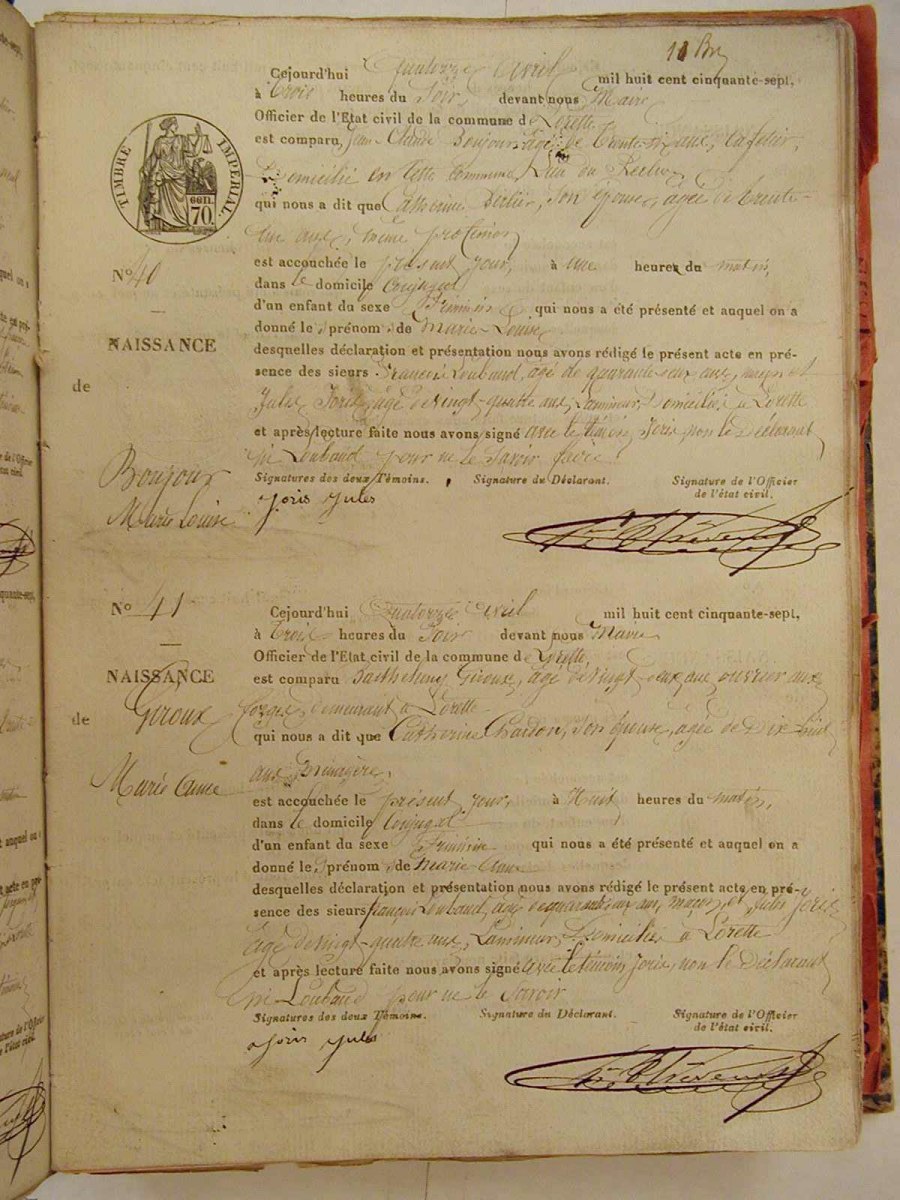 11 Bry
Cejourd'hui Quatorze Avril mil huit cent cinquante-sept,
à Trois heures du Soir, devant nous Maire
Officier de l'Etat civil de la commune de Lorette
est comparu, Jean Claude Boujour, âgé de trente-six ans, Cafetier,
TIMBRE IMPERIAL
70
Domicilié en cette Commune, Rue du
qui nous a dit que Catherine son épouse, agée de trente-
un ans, même profession
est accouchée le présent jour, à une heures du matin,
N° 40
dans le domicile Conjugal
d'un enfant du sexe Féminin qui nous a été présenté et auquel on a
donné le prénom de Marie Louise
NAISSANCE
desquelles déclaration et présentation nous avons rédigé le présent acte en pré-
sence des sieurs François Loubaud, agé de quarante-deux ans, maçon et
de
Jules Joris, âgé de vingt-quatre ans, Lamineur, Domiciliés à Lorette
et après lecture faite nous avons signé avec le témoin Joris, non le Déclarant
ni Loubaud pour ne le Savoir faire.
Boujour
Marie Louise
Signatures des deux Témoins. Signature du Déclarant. Signature de l'Officier
de l'état civil.
Joris Jules
N° 41
Cejourd'hui Quatorze Avril mil huit cent cinquante-sept,
à Trois heures du Soir devant nous Maire
Officier de l'Etat civil de la commune de Lorette
NAISSANCE
est comparu Barthelemy Giroux, agé de vingt-deux ans, ouvrier aux
de Giroux
forges, demeurant à Lorette
qui nous a dit que Catherine Chardon, son épouse, agée de Dix-huit
Marie Anne
ans, ménagère,
est accouchée le présent jour, à Huit heures du matin,
dans le domicile Conjugal
d'un enfant du sexe Féminin qui nous a été présenté et auquel on a
donné le prénom de Marie Anne
desquelles déclaration et présentation nous avons rédigé le présent acte en pré-
sence des sieurs françois Loubaud, agé de quarante-deux ans, maçon, et Jules Joris
agé de vingt-quatre ans, Lamineur, Domiciliés à Lorette
et après lecture faite nous avons signé avec le témoin Joris, non le Déclarant
ni Loubaud pour ne le Savoir
Signatures des deux Témoins. Signature du Déclarant. Signature de l'Officier
de l'état civil.
Joris Jules